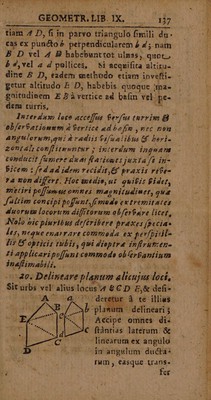 GEOMETR. LIB IX. 137
tiam A D, si in parvo triangulo simili du-
cas ex puncto b perpendicularem b d; nam
B D vel A B habebunt tot ulnas, quot
b d, vel a d pollices. Si acquisita altitu-
dine B D, eadem methodo etiam investi-
getur altitudo E D, habebis quoque ma-
gnitudinem E B à vertice ad basin vel pe-
dem turris.
Interdum loco accessûs versus turrim &
observationum à vertice ad basin, nec non
angulorum, qui à radiis visualibus & hori-
zontali constituuntur; interdum inquam
conducit sumere duas stationes juxta se in-
vicem; sed ad idem recidit, & praxis reve-
ra non differt. Hoc modo, ut quibis videt,
metiri possumus omnes magnitudines, quæ
saltim concipi possunt, simodo extremitates
duorum locorum dissitorum observare licet.
Nolo hic pluribus describere praxes specia-
les, neque enarrare commoda ex perspicil-
lis & opticis tubis, qui dioptræ instrumen-
ti applicari possunt commodo observantium
inæstimabili.
20. Delineare planum alicujus loci.
Sit urbs vel alius locus A B C D E, & desi-
deretur à te illius
planum delineari;
Accipe omnes di-
stantias laterum &
linearum ex angulo
in angulum ducta-
rum, easque trans-
fer
A B E C D
a b